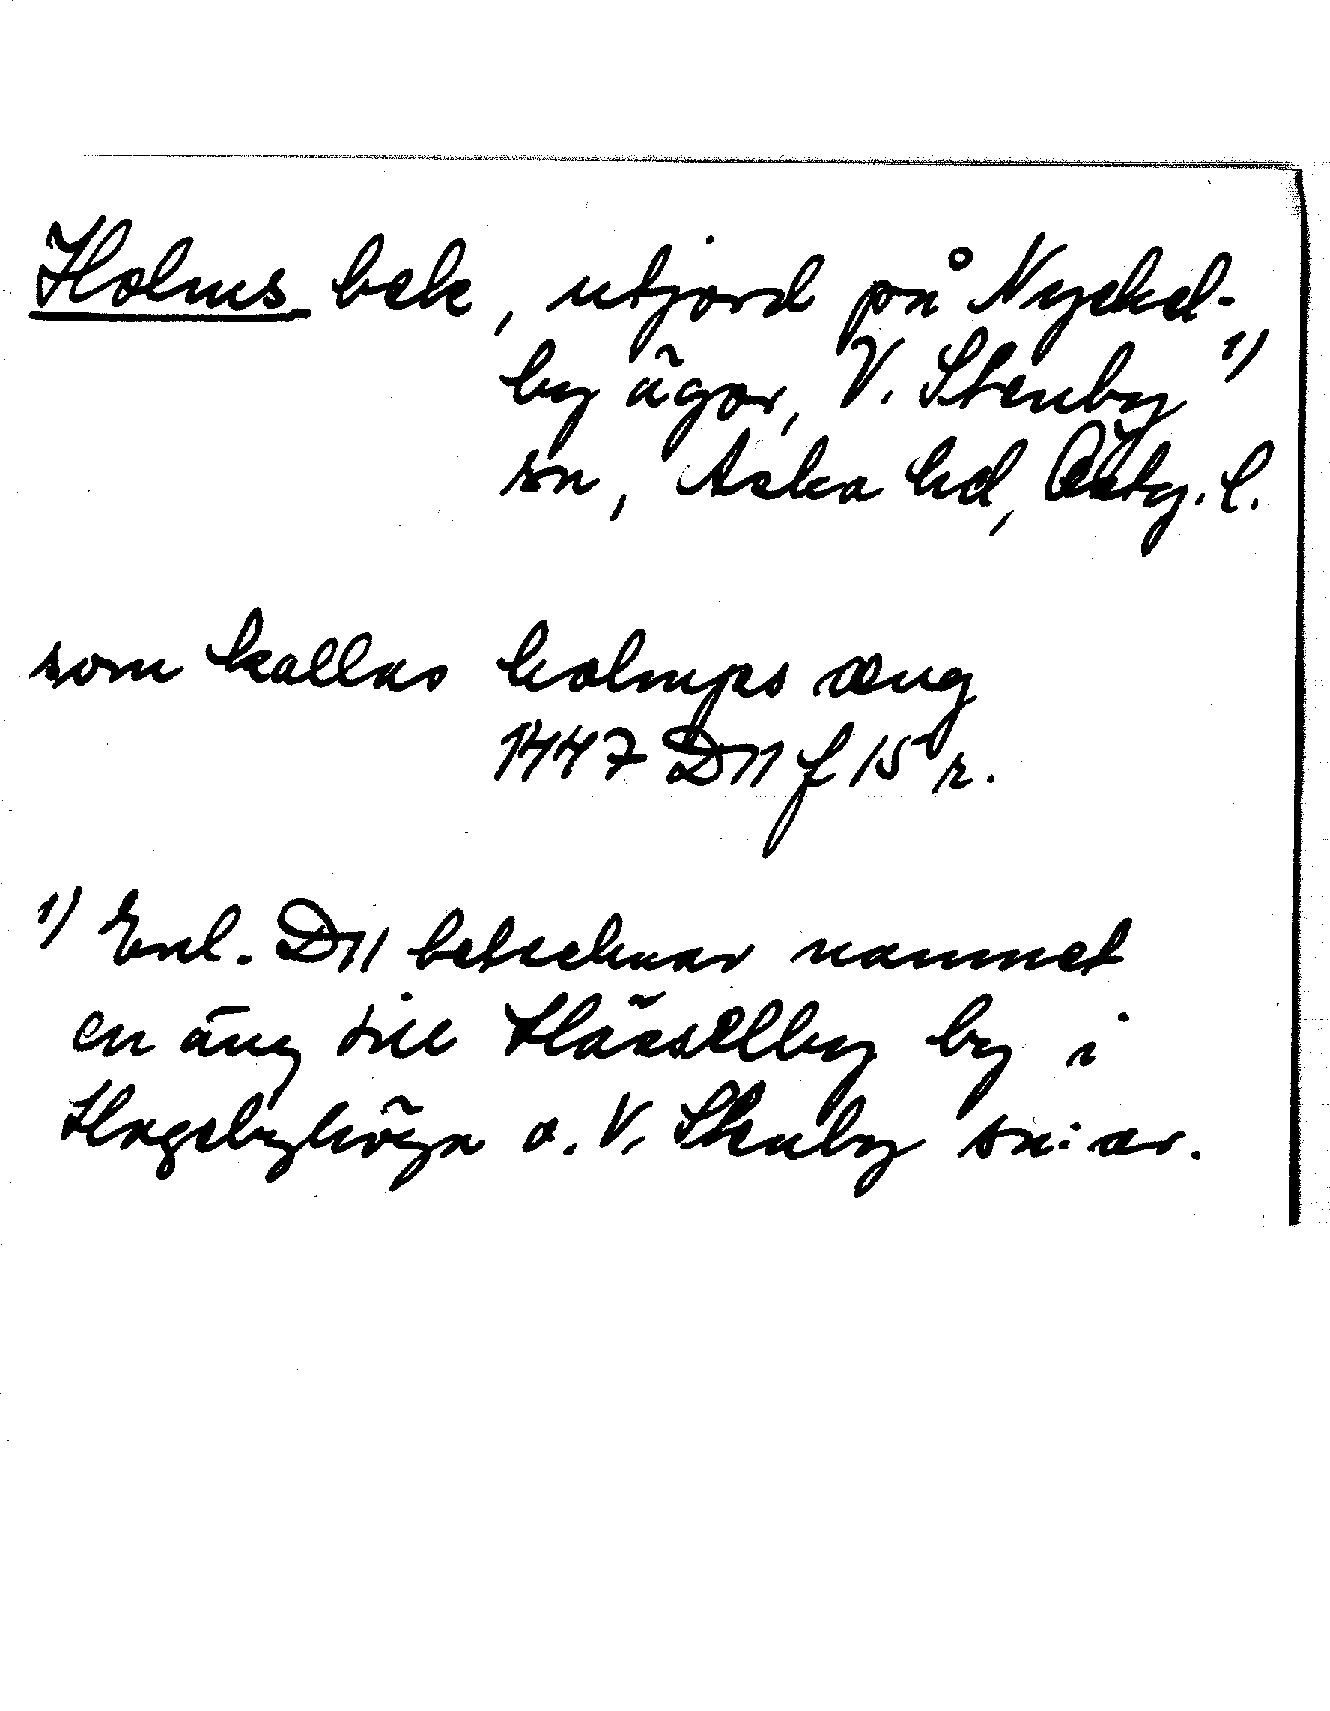 Holms bek, utjord på Nyckel-
by ägor, V. Stenby ¹)
sn, Aska hd, Östg. l.
som kallas holmps æng
1447 D11 f 15 r.
¹) Enl. D11 betecknar namnet
en äng till Hässelby by i
Hagebyhöga o. V. Stenby sn:ar.